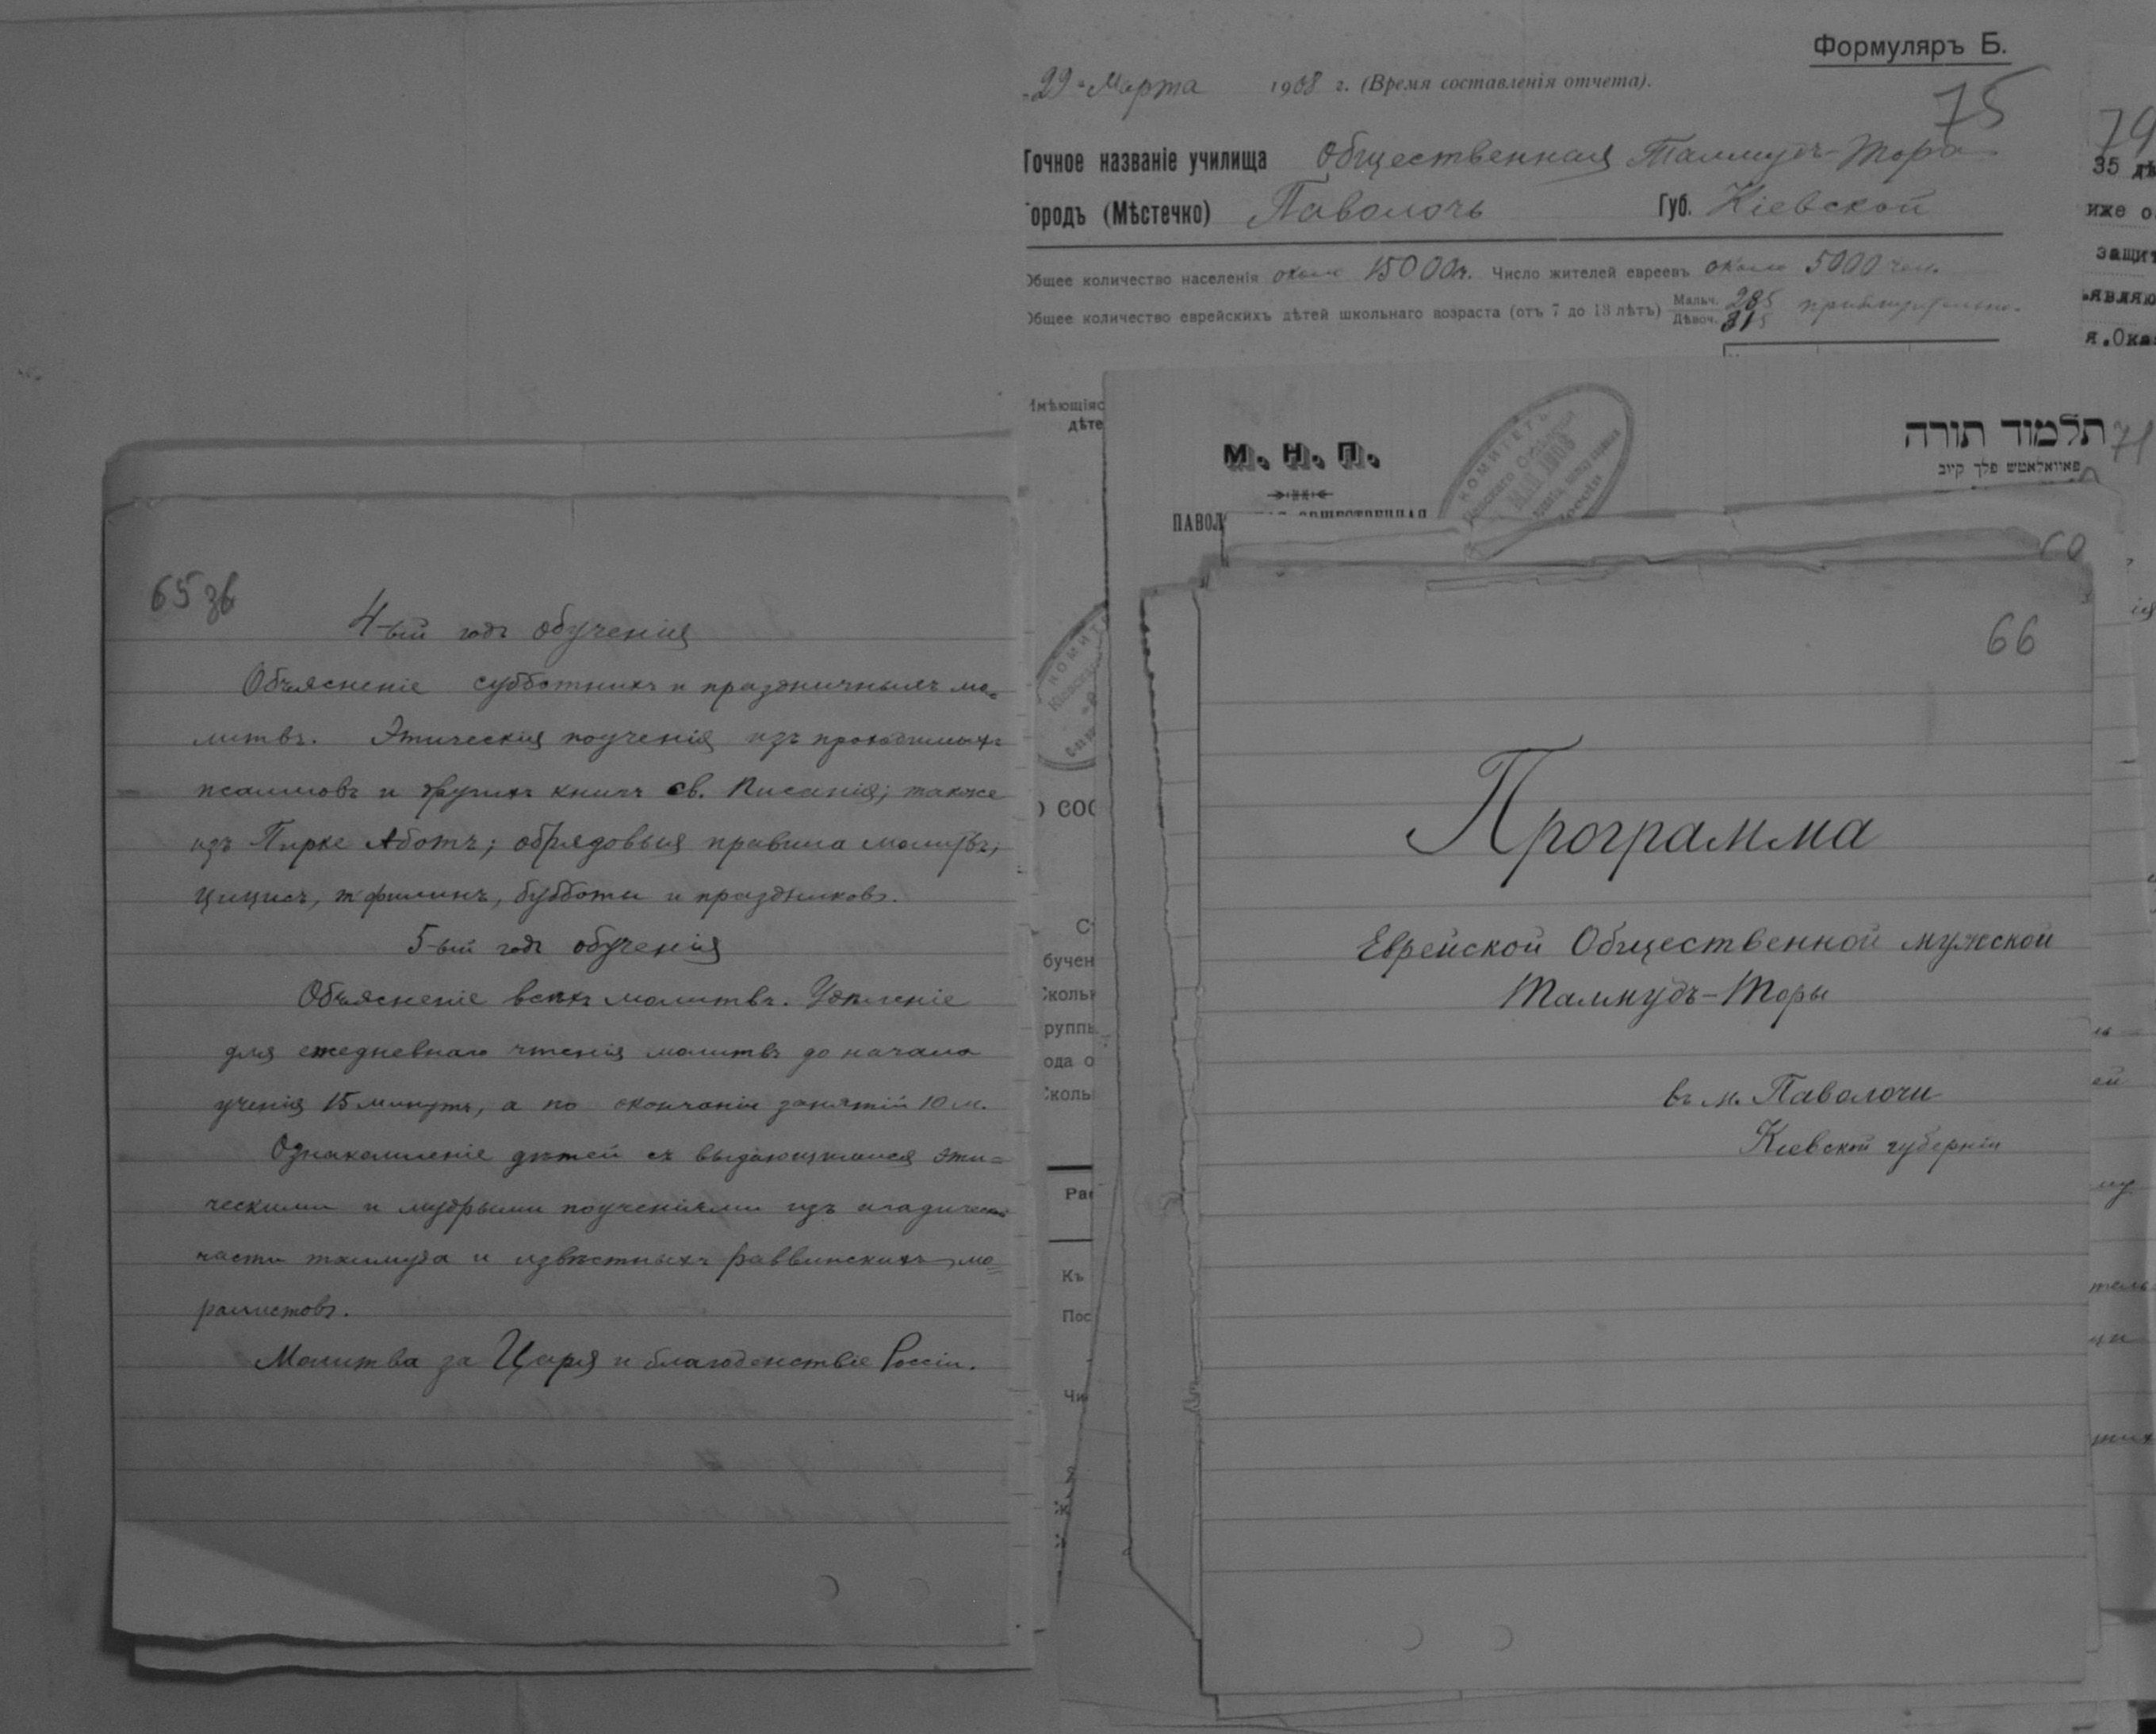 65 зв
4-ый годъ обученія
Объясненіе субботнихъ и праздничныхъ мо-
литвъ. Этическія поученія изъ проходимыхъ
псалмовъ и другихъ книгъ св. Писанія; также
изъ Пирке Аботъ; обрядовыя правила молитвъ;
цицисъ, тфилинъ, субботы и праздниковъ.
5-ый годъ обученія
Объясненіе всѣхъ молитвъ. Удѣленіе
для ежедневнаго чтенія молитвъ до начала
ученія 15 минутъ, а по окончаніи занятій 10 м.
Ознакомленіе дѣтей съ выдающимися эти=
ческими и мудрыми поученіями изъ агадической
части талмуда и извѣстныхъ раввинскихъ мо=
ралистовъ.
Молитва за Царя и благоденствіе Россіи.
Формуляръ Б.
29 Марта 1908 г. (Время составленія отчета).
75
Точное названіе училища Общественная Талмудъ-Тора
ородъ (Мѣстечко) Паволочь Губ. Кіевской
Общее количество населенія около 15000 ч. Число жителей евреевъ около 5000 чел.
Общее количество еврейскихъ дѣтей школьнаго возраста (отъ 7 до 13 лѣтъ) Мальч. 285 приблизительно.
Дѣвоч. 315
79
35 дѣ
иже о
защит
являю
я.Ока
Имѣющіяс
дѣте
М. Н. П.
КОМИТЕТЪ
МАЙ 1908
Россіи
תלמוד תורה
פאוואלאטש פלך קיוב
71
ПАВОЛ ОБЩЕСТВЕННАЯ
КОМИТ
О СОС
С
бучен
Сколь
руппы
ода о
Сколь
Рас
Къ
Пос
Чи
60
66
Программа
Еврейской Общественной мужской
Талмудъ-Торы
въ м. Паволочи
Кіевской губерніи